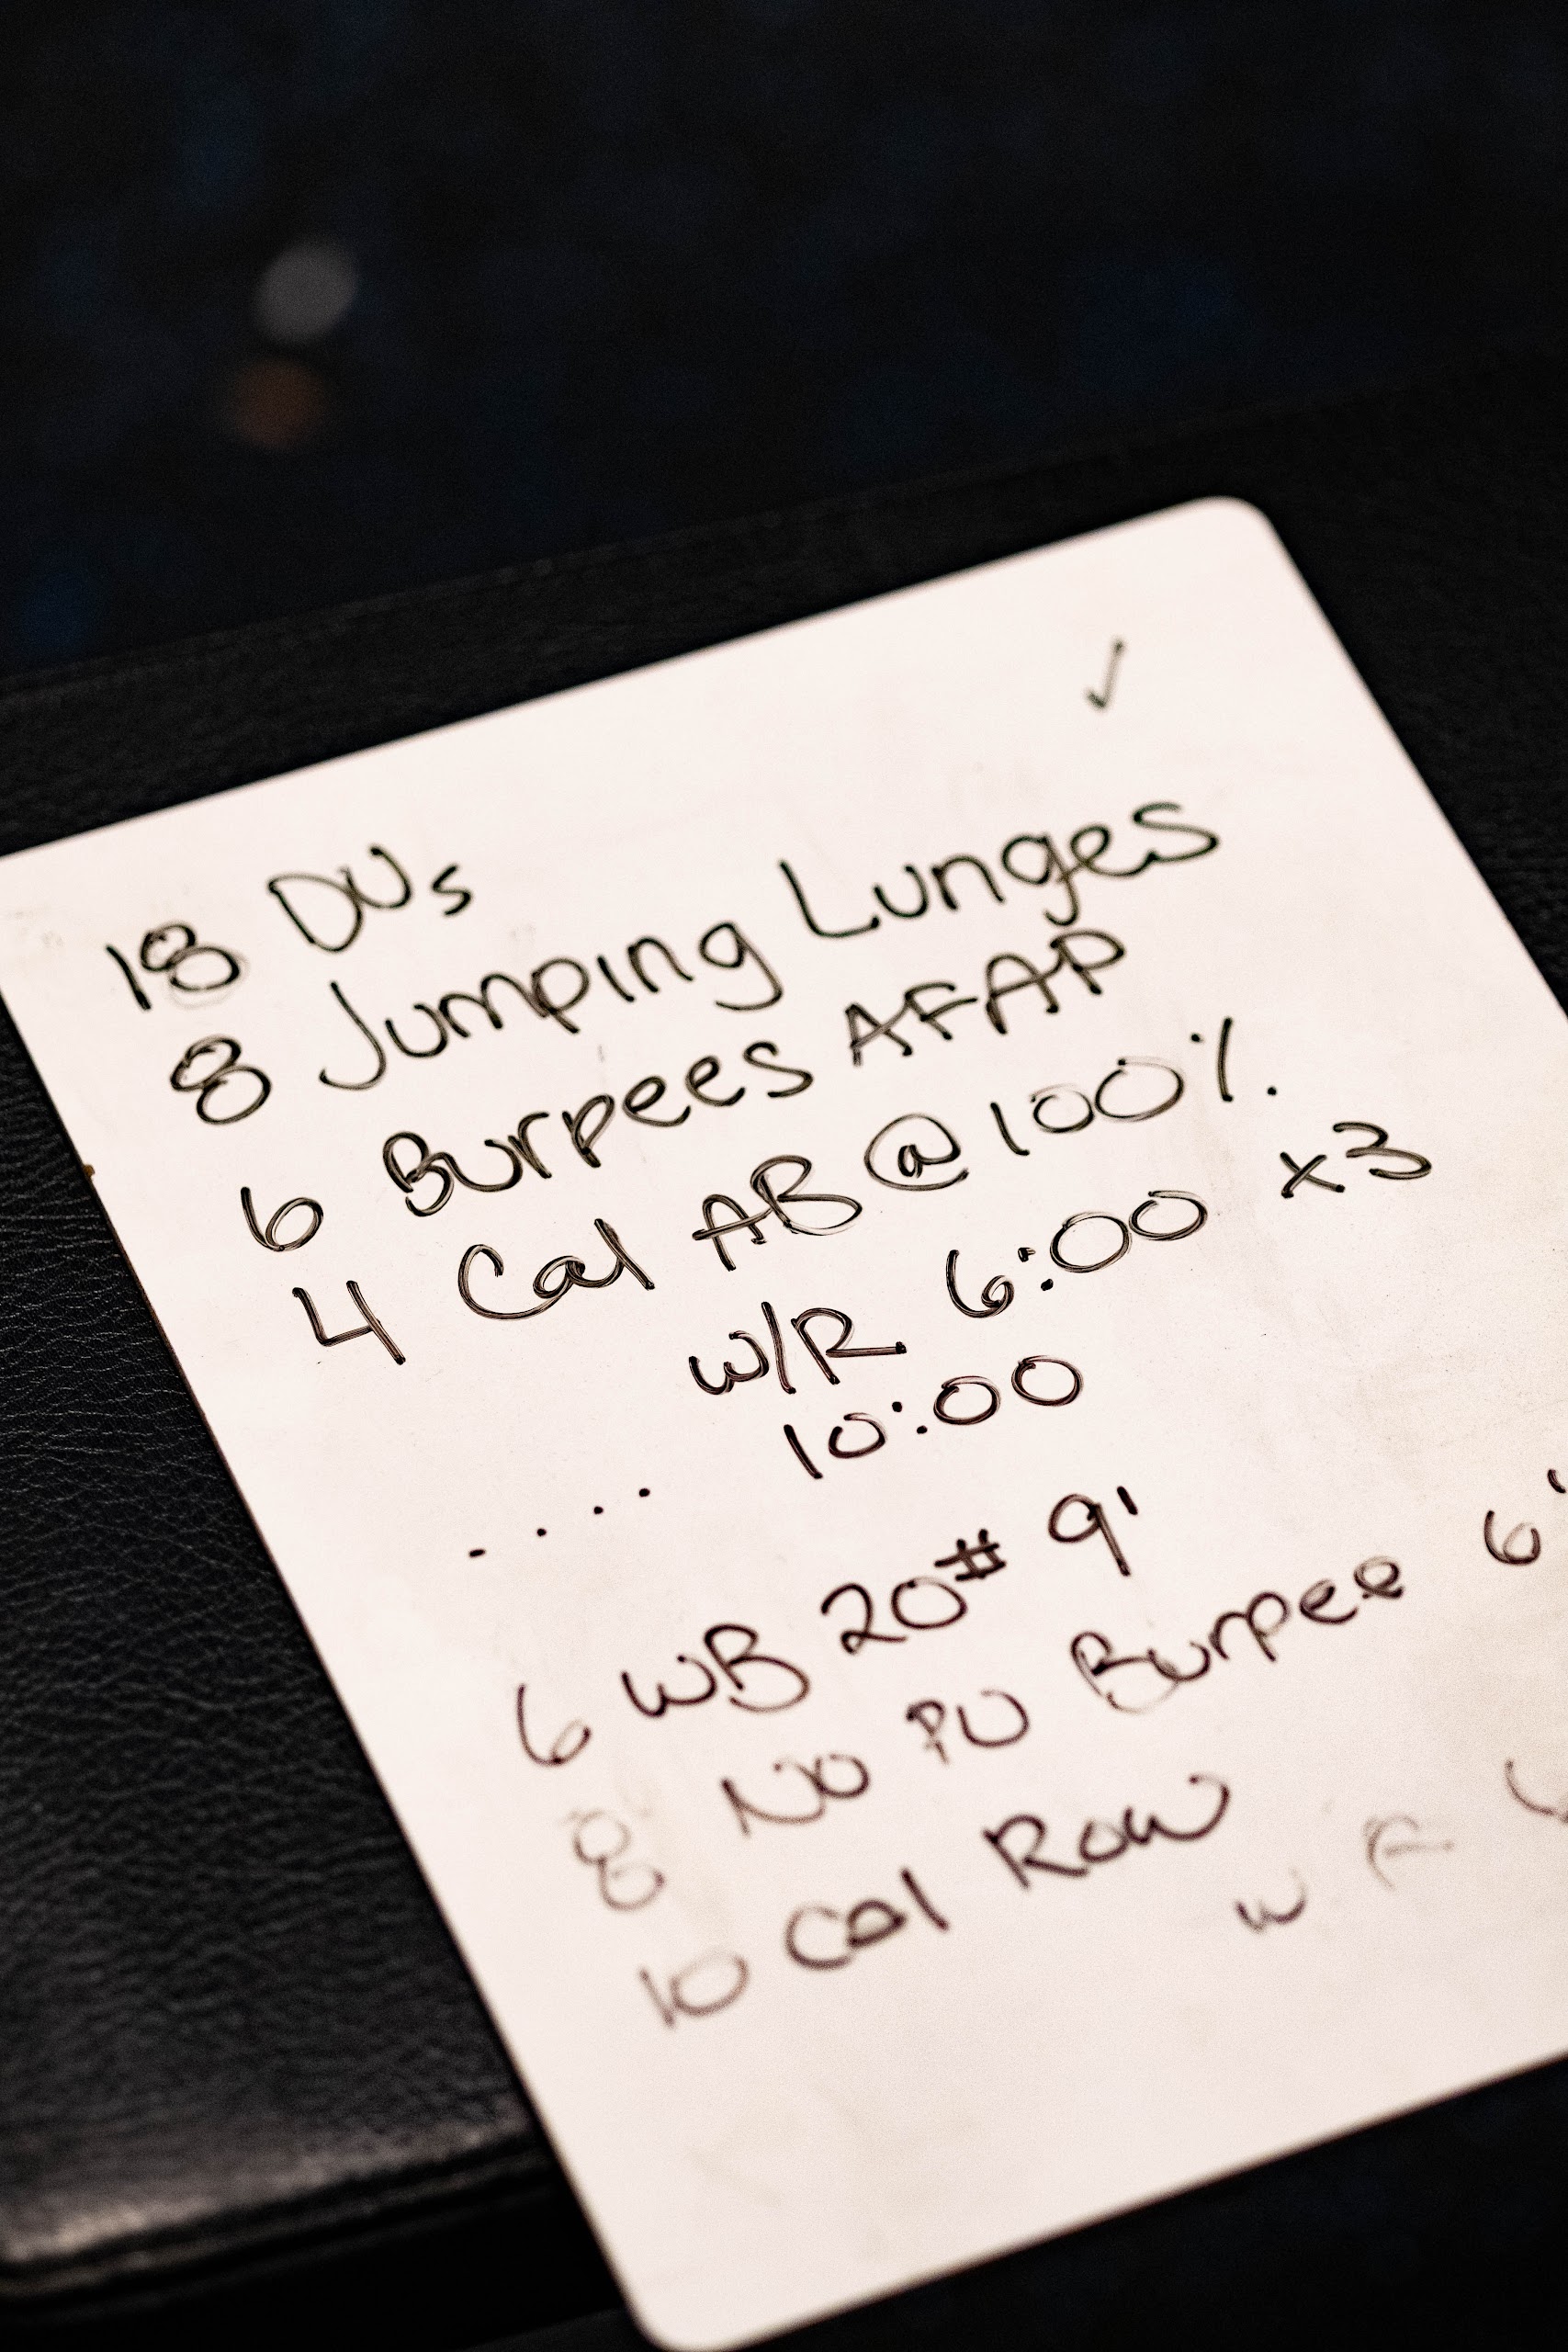 ✓
18 DUs
8 Jumping Lunges
6 Burpees AFAP
4 Cal AB @ 100%
W/R 6:00 x3
10:00
....
6 WB 20# 9'
8 No PU Burpee 6'
10 Cal Row
W R